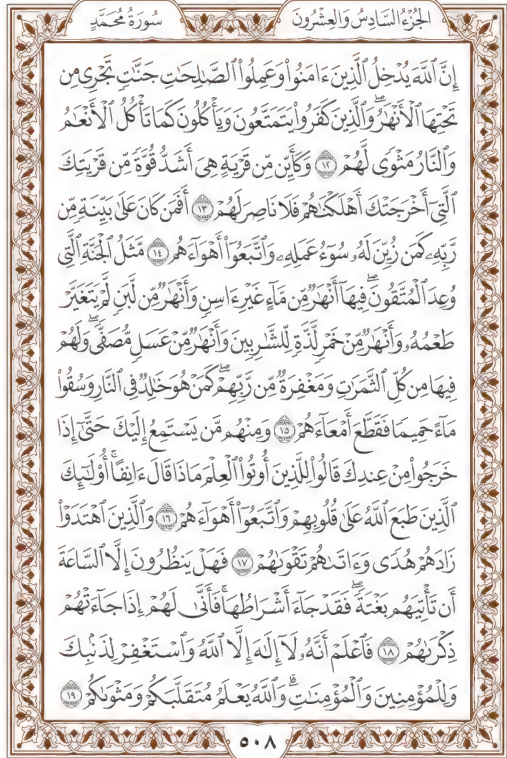 الجُزْءُ السَّادِسُ وَالعِشْرُونَ
سُورَةُ مُحَمَّدٍ
إِنَّ ٱللَّهَ يُدْخِلُ ٱلَّذِينَ ءَامَنُوا۟ وَعَمِلُوا۟ ٱلصَّٰلِحَٰتِ جَنَّٰتٍ تَجْرِى مِن
تَحْتِهَا ٱلْأَنْهَٰرُ ۖ وَٱلَّذِينَ كَفَرُوا۟ يَتَمَتَّعُونَ وَيَأْكُلُونَ كَمَا تَأْكُلُ ٱلْأَنْعَٰمُ
وَٱلنَّارُ مَثْوًى لَّهُمْ ١٢ وَكَأَيِّن مِّن قَرْيَةٍ هِىَ أَشَدُّ قُوَّةً مِّن قَرْيَتِكَ
ٱلَّتِىٓ أَخْرَجَتْكَ أَهْلَكْنَٰهُمْ فَلَا نَاصِرَ لَهُمْ ١٣ أَفَمَن كَانَ عَلَىٰ بَيِّنَةٍ مِّن
رَّبِّهِۦ كَمَن زُيِّنَ لَهُۥ سُوٓءُ عَمَلِهِۦ وَٱتَّبَعُوٓا۟ أَهْوَآءَهُم ١٤ مَّثَلُ ٱلْجَنَّةِ ٱلَّتِى
وُعِدَ ٱلْمُتَّقُونَ ۖ فِيهَآ أَنْهَٰرٌ مِّن مَّآءٍ غَيْرِ ءَاسِنٍ وَأَنْهَٰرٌ مِّن لَّبَنٍ لَّمْ يَتَغَيَّرْ
طَعْمُهُۥ وَأَنْهَٰرٌ مِّنْ خَمْرٍ لَّذَّةٍ لِّلشَّٰرِبِينَ وَأَنْهَٰرٌ مِّنْ عَسَلٍ مُّصَفًّى ۖ وَلَهُمْ
فِيهَا مِن كُلِّ ٱلثَّمَرَٰتِ وَمَغْفِرَةٌ مِّن رَّبِّهِمْ ۖ كَمَنْ هُوَ خَٰلِدٌ فِى ٱلنَّارِ وَسُقُوا۟
مَآءً حَمِيمًا فَقَطَّعَ أَمْعَآءَهُمْ ١٥ وَمِنْهُم مَّن يَسْتَمِعُ إِلَيْكَ حَتَّىٰٓ إِذَا
خَرَجُوا۟ مِنْ عِندِكَ قَالُوا۟ لِلَّذِينَ أُوتُوا۟ ٱلْعِلْمَ مَاذَا قَالَ ءَانِفًا ۚ أُو۟لَٰٓئِكَ
ٱلَّذِينَ طَبَعَ ٱللَّهُ عَلَىٰ قُلُوبِهِمْ وَٱتَّبَعُوٓا۟ أَهْوَآءَهُمْ ١٦ وَٱلَّذِينَ ٱهْتَدَوْا۟
زَادَهُمْ هُدًى وَءَاتَىٰهُمْ تَقْوَىٰهُمْ ١٧ فَهَلْ يَنظُرُونَ إِلَّا ٱلسَّاعَةَ
أَن تَأْتِيَهُم بَغْتَةً ۖ فَقَدْ جَآءَ أَشْرَاطُهَا ۚ فَأَنَّىٰ لَهُمْ إِذَا جَآءَتْهُمْ
ذِكْرَىٰهُمْ ١٨ فَٱعْلَمْ أَنَّهُۥ لَآ إِلَٰهَ إِلَّا ٱللَّهُ وَٱسْتَغْفِرْ لِذَنۢبِكَ
وَلِلْمُؤْمِنِينَ وَٱلْمُؤْمِنَٰتِ ۗ وَٱللَّهُ يَعْلَمُ مُتَقَلَّبَكُمْ وَمَثْوَىٰكُمْ ١٩
٥٠٨